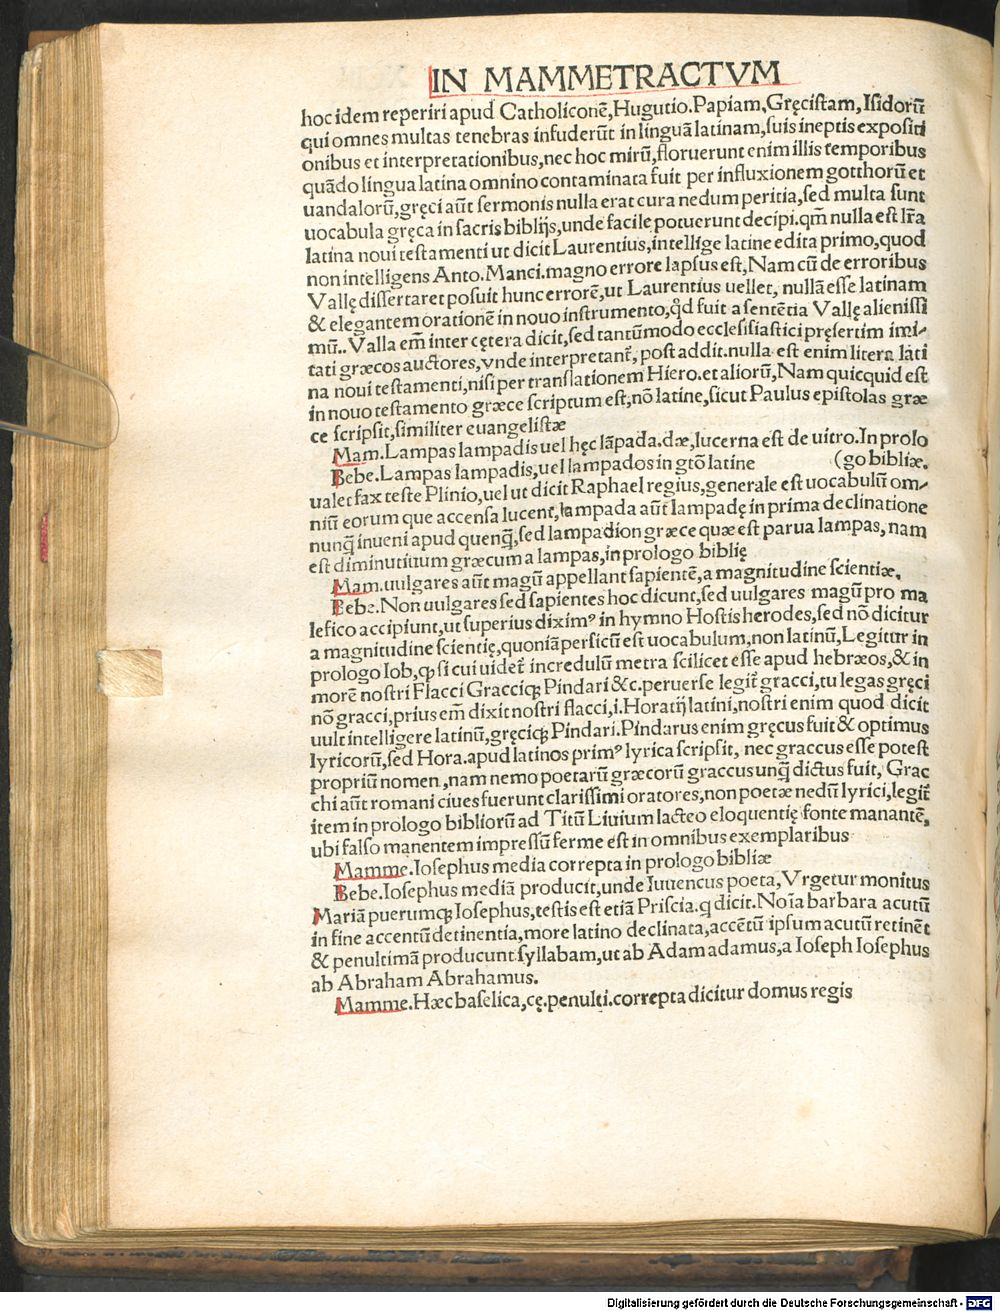 IN MAMMETRACTVM
hoc idem reperiri apud Catholiconē, Hugutio. Papiam, Gręcistam, Isidorū
qui omnes multas tenebras infuderūt in linguā latinam, suis ineptis expositi
onibus et interpretationibus, nec hoc mirū, floruerunt enim illis temporibus
quādo lingua latina omnino contaminata fuit per influxionem gotthorū et
uandalorū, gręci aūt sermonis nulla erat cura nedum peritia, sed multa sunt
uocabula gręca in sacris biblijs, unde facile potuerunt decipi. qm̄ nulla est lr̄a
latina noui testamenti ut dicit Laurentius, intellige latine edita primo, quod
non intelligens Anto. Manci. magno errore lapsus est, Nam cū de erroribus
Vallę dissertaret posuit hunc errorē, ut Laurentius uellet, nullā esse latinam
& elegantem orationē in nouo instrumento, qd̄ fuit a sentētia Vallę alienissi
mū.. Valla em̄ inter cętera dicit, sed tantūmodo ecclesisiastici pręsertim imi-
tati græcos auctores, vnde interpretant̄, post addit. nulla est enim litera lati
na noui testamenti, nisi per translationem Hiero. et aliorū, Nam quicquid est
in nouo testamento græce scriptum est, nō latine, sicut Paulus epistolas græ
ce scripsit, similiter euangelistæ
Mam. Lampas lampadis uel hęc lāpada. dæ, lucerna est de uitro. In prolo
Bebe. Lampas lampadis, uel lampados in gtō latine (go bibliæ.
ualet fax teste Plinio, uel ut dicit Raphael regius, generale est uocabulū om-
niū eorum que accensa lucent, lampada aūt lampadę in prima declinatione
nunq̄ inueni apud quenq̄, sed lampadion græce quæ est parua lampas, nam
est diminutiuum græcum a lampas, in prologo biblię
Mam. uulgares aūt magū appellant sapientē, a magnitudine scientiæ.
Bebe. Non uulgares sed sapientes hoc dicunt, sed uulgares magū pro ma
lefico accipiunt, ut superius diximꝰ in hymno Hostis herodes, sed nō dicitur
a magnitudine scientię, quoniā persicū est uocabulum, non latinū, Legitur in
prologo Iob, ꝙ si cui uidet̄ incredulū metra scilicet esse apud hebræos, & in
morē nostri Flacci Gracciqꝫ Pindari &c. peruerse legit̄ gracci, tu legas gręci
nō gracci, prius em̄ dixit nostri flacci, i. Horatij latini, nostri enim quod dicit
uult intelligere latinū, gręciqꝫ Pindari. Pindarus enim gręcus fuit & optimus
lyricorū, sed Hora. apud latinos primꝰ lyrica scripsit, nec graccus esse potest
propriū nomen, nam nemo poetarū græcorū graccus unq̄ dictus fuit, Grac
chi aūt romani ciues fuerunt clarissimi oratores, non poetæ nedū lyrici, legit̄
item in prologo bibliorū ad Titū Liuium lacteo eloquentię fonte manantē,
ubi falso manentem impressū ferme est in omnibus exemplaribus
Mamme. Iosephus media correpta in prologo bibliæ
Bebe. Iosephus mediā producit, unde Iuuencus poeta, Vrgetur monitus
Mariā puerumqꝫ Iosephus, testis est etiā Priscia. q dicit. Noīa barbara acutū
in fine accentū detinentia, more latino declinata, accētū ipsum acutū retinēt
& penultimā producunt syllabam, ut ab Adam adamus, a Ioseph Iosephus
ab Abraham Abrahamus.
Mamme. Hæc baselica, cę. penulti. correpta dicitur domus regis
Digitalisierung gefördert durch die Deutsche Forschungsgemeinschaft - DFG